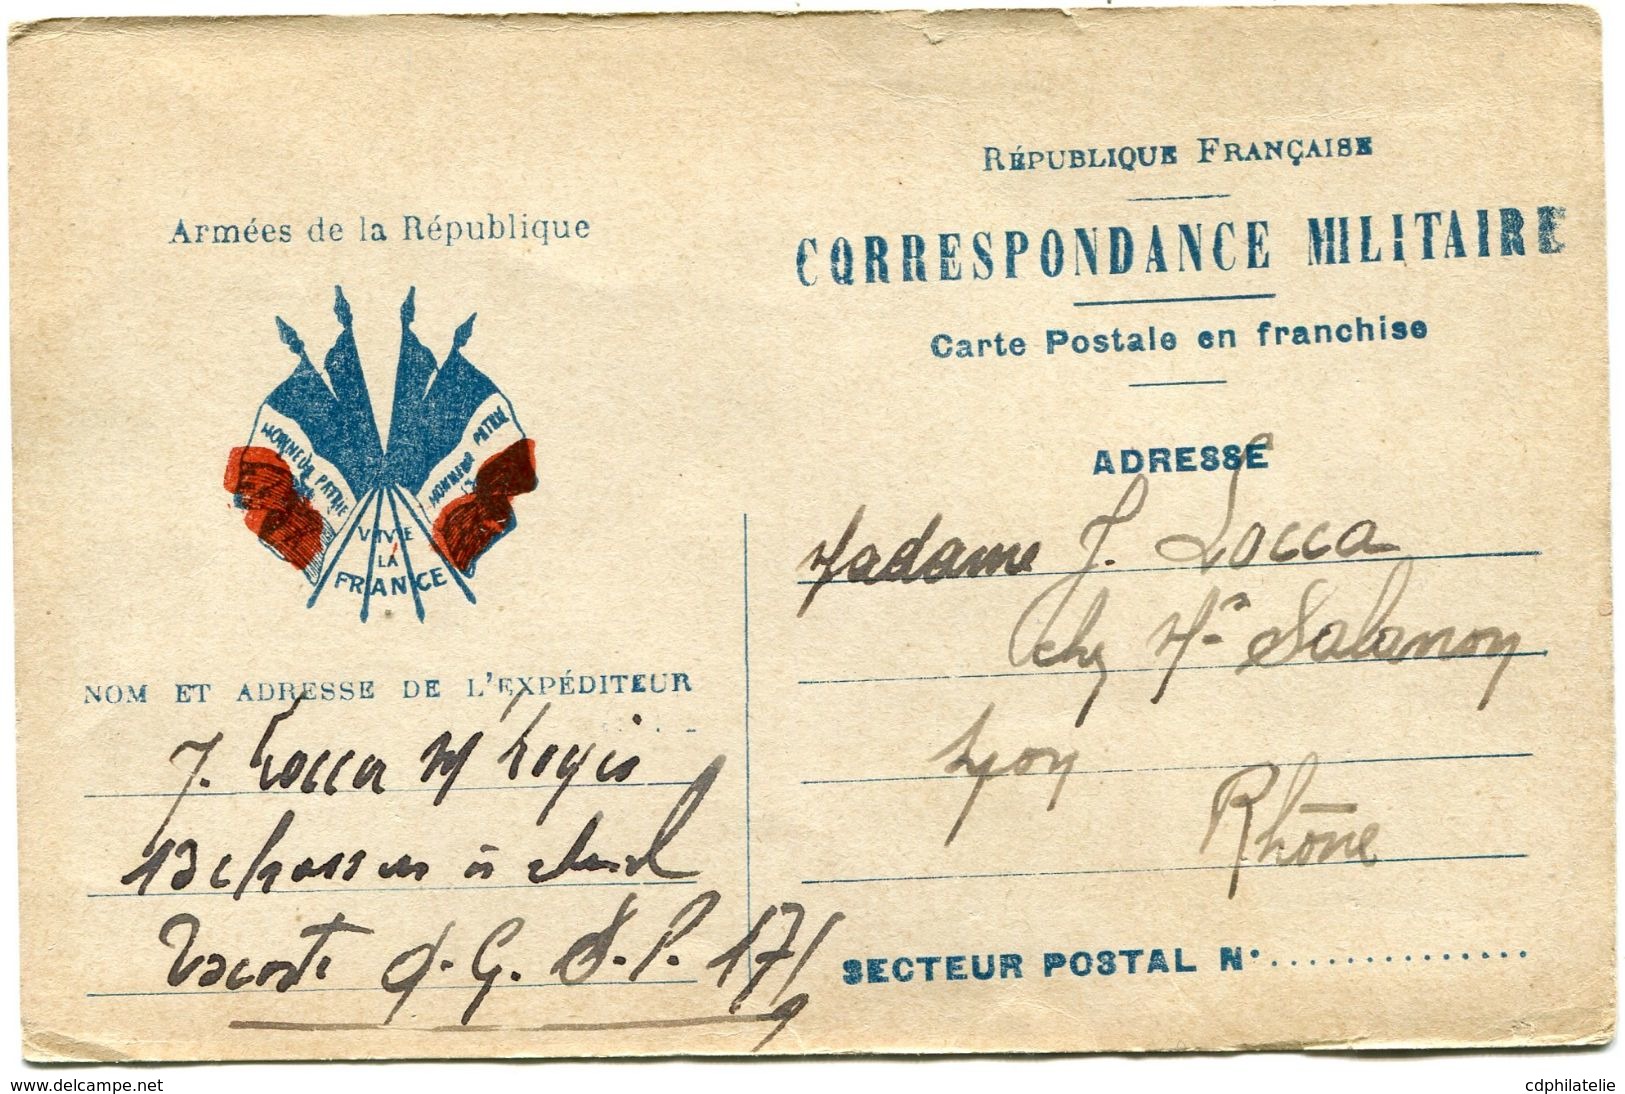 Armées de la République
HONNEUR PATRIE
HONNEUR PATRIE
VIVE
LA
FRANCE
NOM ET ADRESSE DE L'EXPÉDITEUR
J. Locca M Logis
13 chasseurs à cheval
Q. G. S. P. 175
RÉPUBLIQUE FRANÇAISE
CORRESPONDANCE MILITAIRE
Carte Postale en franchise
ADRESSE
Madame J. Locca
chez Mr Salamon
Lyon
Rhône
SECTEUR POSTAL N°
www.delcampe.net
cdphilatelie